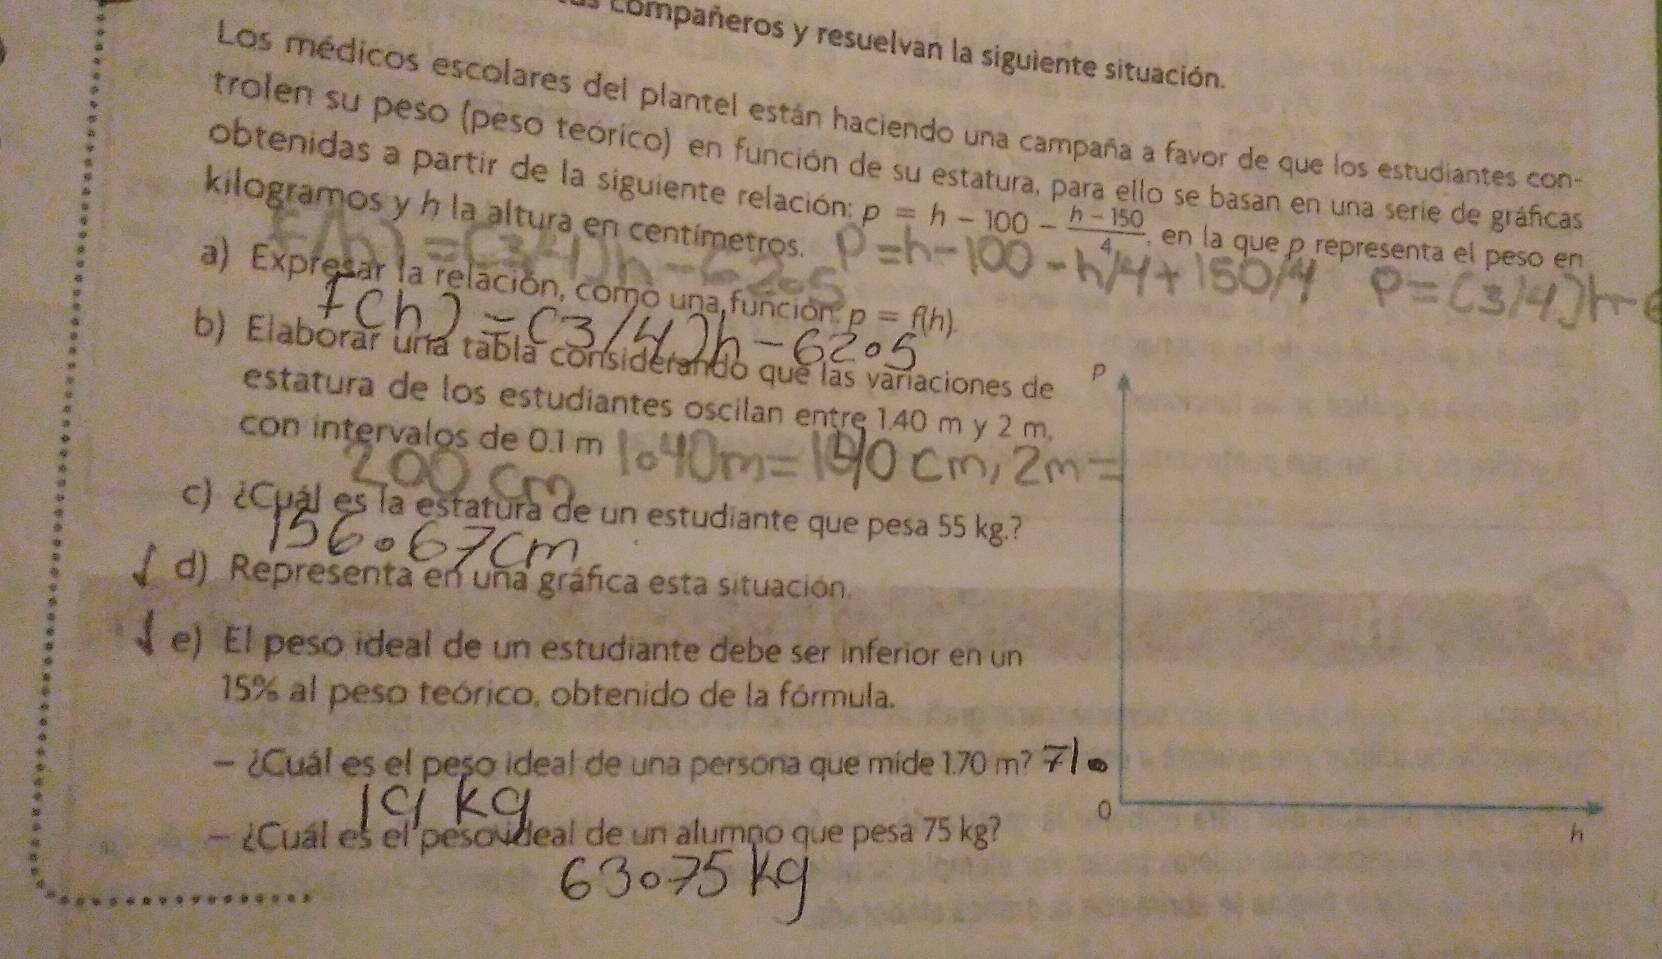 compañeros y resuelvan la siguiente situación.
Los médicos escolares del plantel están haciendo una campaña a favor de que los estudiantes con-
trolen su peso (peso teórico) en función de su estatura, para ello se basan en una serie de gráficas
obtenidas a partir de la siguiente relación: p = h - 100 - (h - 150)/4, en la que p representa el peso en
kilogramos y h la altura en centímetros. P=h-100-h/4+150/4 P=(3/4)h-6
f(h)=(3/4)h-62.5
a) Expresar la relación, como una función: p = f(h).
f(h)=(3/4)h-62.5
b) Elaborar una tabla considerando que las variaciones de
estatura de los estudiantes oscilan entre 1.40 m y 2 m,
con intervalos de 0.1 m 1.40m=140cm, 2m=
200 cm
c) ¿Cuál es la estatura de un estudiante que pesa 55 kg.?
156.67cm
d) Representa en una gráfica esta situación.
e) El peso ideal de un estudiante debe ser inferior en un
15% al peso teórico, obtenido de la fórmula.
- ¿Cuál es el peso ideal de una persona que mide 1.70 m? 71.
19 kg
- ¿Cuál es el peso ideal de un alumno que pesa 75 kg?
63.75 kg
p
0
h